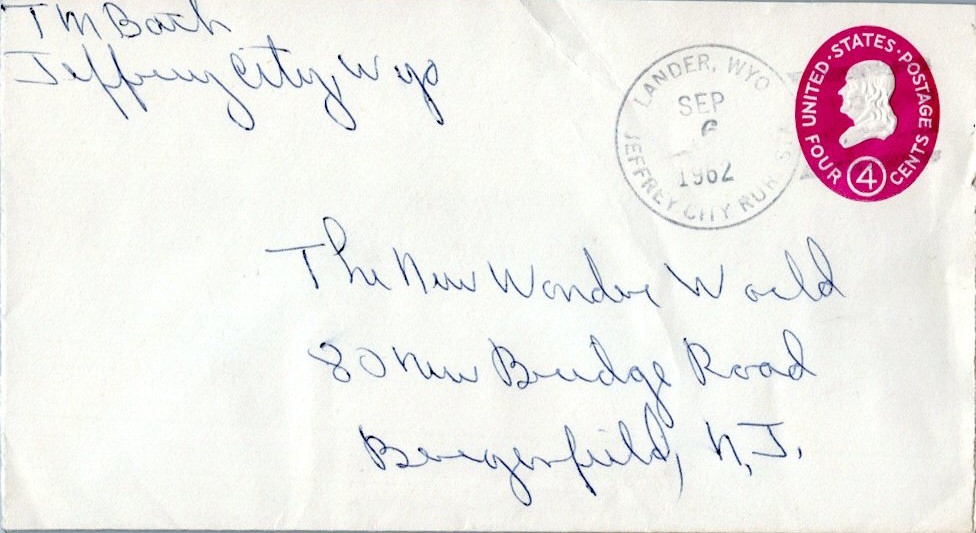 TM Bath
Jeffrey City, Wyo
LANDER, WYO
SEP
6
1962
JEFFREY CITY RUR. STA.
UNITED · STATES · POSTAGE
FOUR 4 CENTS
The New Wonder World
80 New Bridge Road
Bergenfield, N.J.